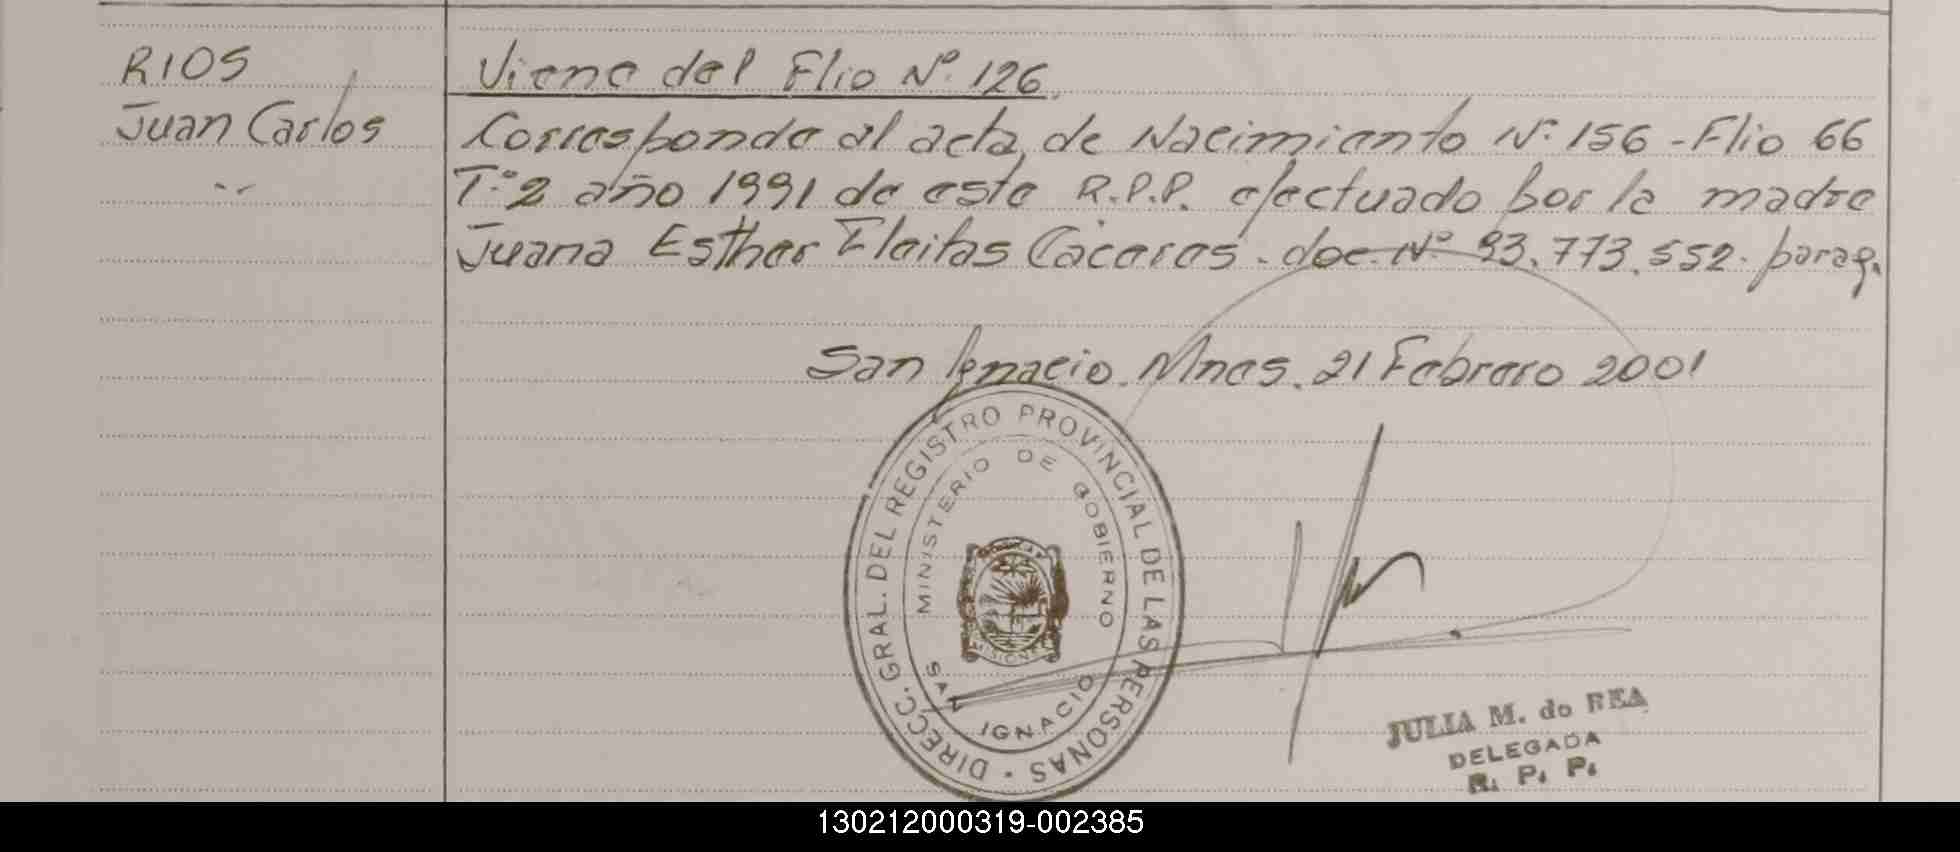 RIOS
Juan Carlos
Viene del Flio Nº 126.
Corresponde al acta de Nacimiento Nº 156 - Flio 66
Tº 2 año 1991 de este R.P.P. efectuado por la madre
Juana Esther Fleitas Cáceres. doc. Nº 93.773.552. parag.
San Ignacio. Mnes. 21 Febrero 2001
DIRECC. GRAL. DEL REGISTRO PROVINCIAL DE LAS PERSONAS
MINISTERIO DE GOBIERNO
MISIONES
SAN IGNACIO
JULIA M. do REA
DELEGADA
R. P. P.
130212000319-002385